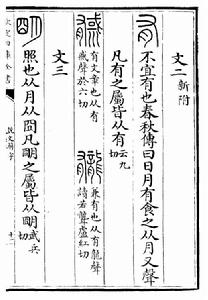 文二 新附
有 不宜有也春秋傳曰日月有食之从月又聲
凡有之屬皆从有 云九切
有文章也从有
惑聲於六切
龓 兼有也从有龍聲
讀若聾盧紅切
文三
朙 照也从月从囧凡朙之屬皆从朙 武兵切